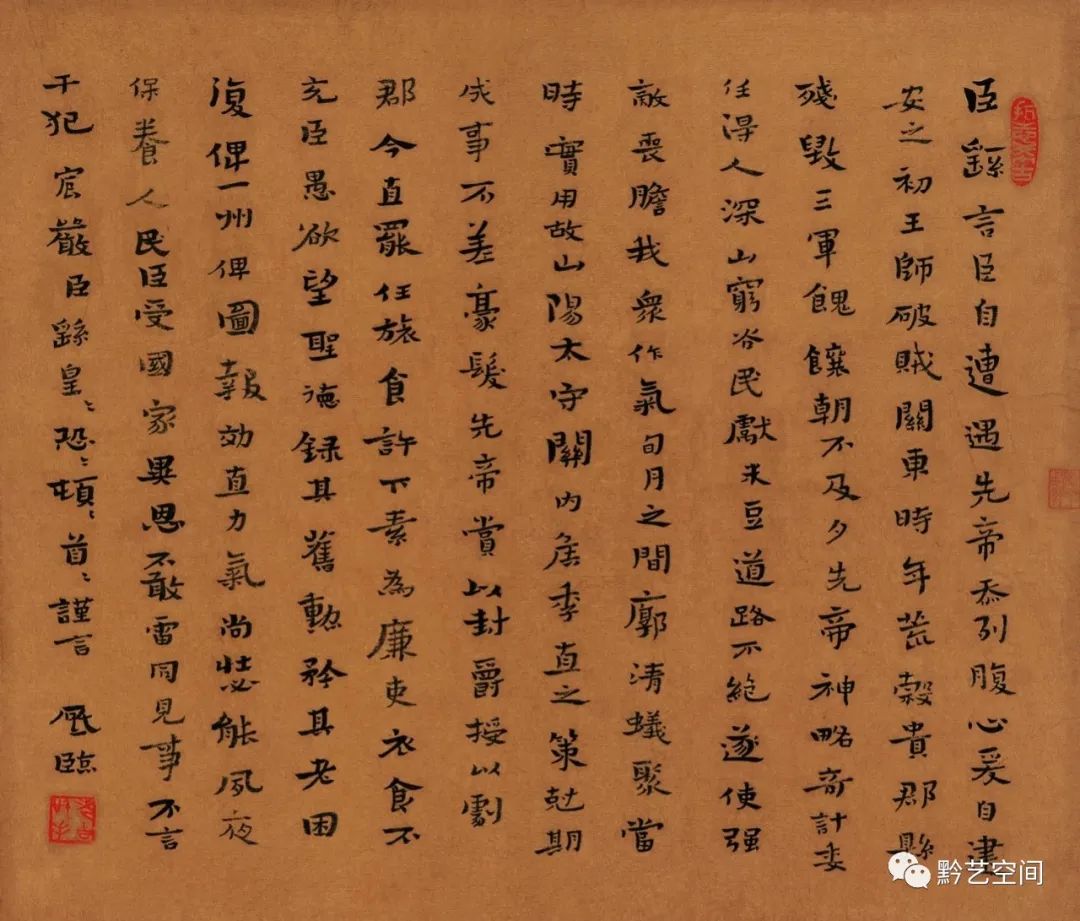 臣繇言臣自遭遇先帝忝列腹心爰自建
安之初王師破賊關東時年荒穀貴郡縣
殘毀三軍餽饟朝不及夕先帝神略奇計委
任得人深山窮谷民獻米豆道路不絶遂使强
敵喪膽我衆作氣旬月之間廓清蟻聚當
時實用故山陽太守關内侯季直之策尅期
成事不差豪髮先帝賞以封爵授以劇
郡今直罷任旅食許下素為廉吏衣食不
充臣愚欲望聖德録其舊勳矜其老困
復俾一州俾圖報效直力氣尚壯必能夙夜
保養人民臣受國家異恩不敢雷同見事不言
干犯宸嚴臣繇皇〻恐〻頓〻首〻謹言 臨
黔艺空间